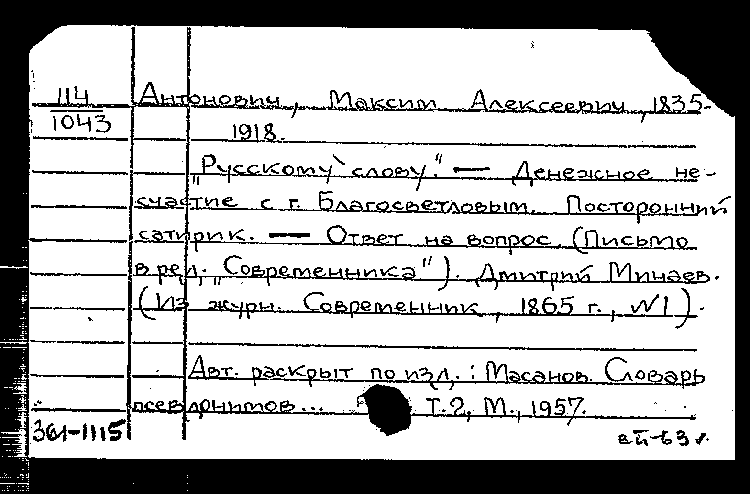 114
1043
Антонович, Максим Алексеевич, 1835-
1918.
„Русскому слову". — Денежное не-
счастие с г. Благосветловым. Посторонний
сатирик. — Ответ на вопрос (Письмо
в ред. „Современника"). Дмитрий Минаев.
(Из журн. Современник, 1865 г., №1).
Авт. раскрыт по изд.: Масанов. Словарь
псевдонимов... Т.2, М., 1957.
361-1115